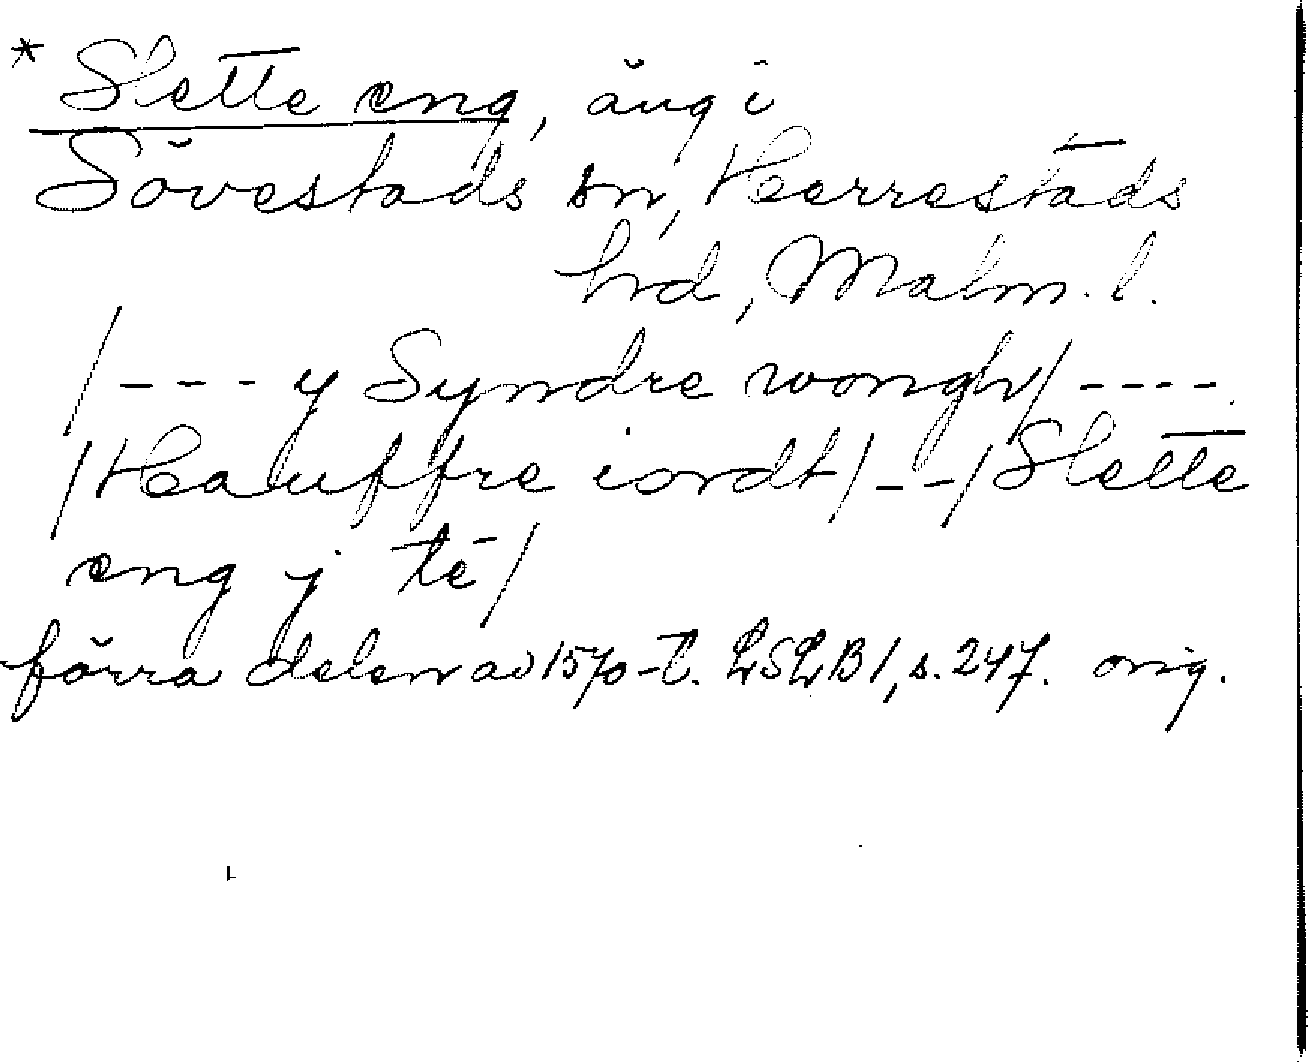 * Slette eng, äng i
Sövestads sn, Herrestads
hrd, Malm. l.
/--- y Syndre wongh/ ----
/Hauffre iordt/--/Slette
eng j té/
förra delen av 1570-t. LSLB1, s. 247. orig.